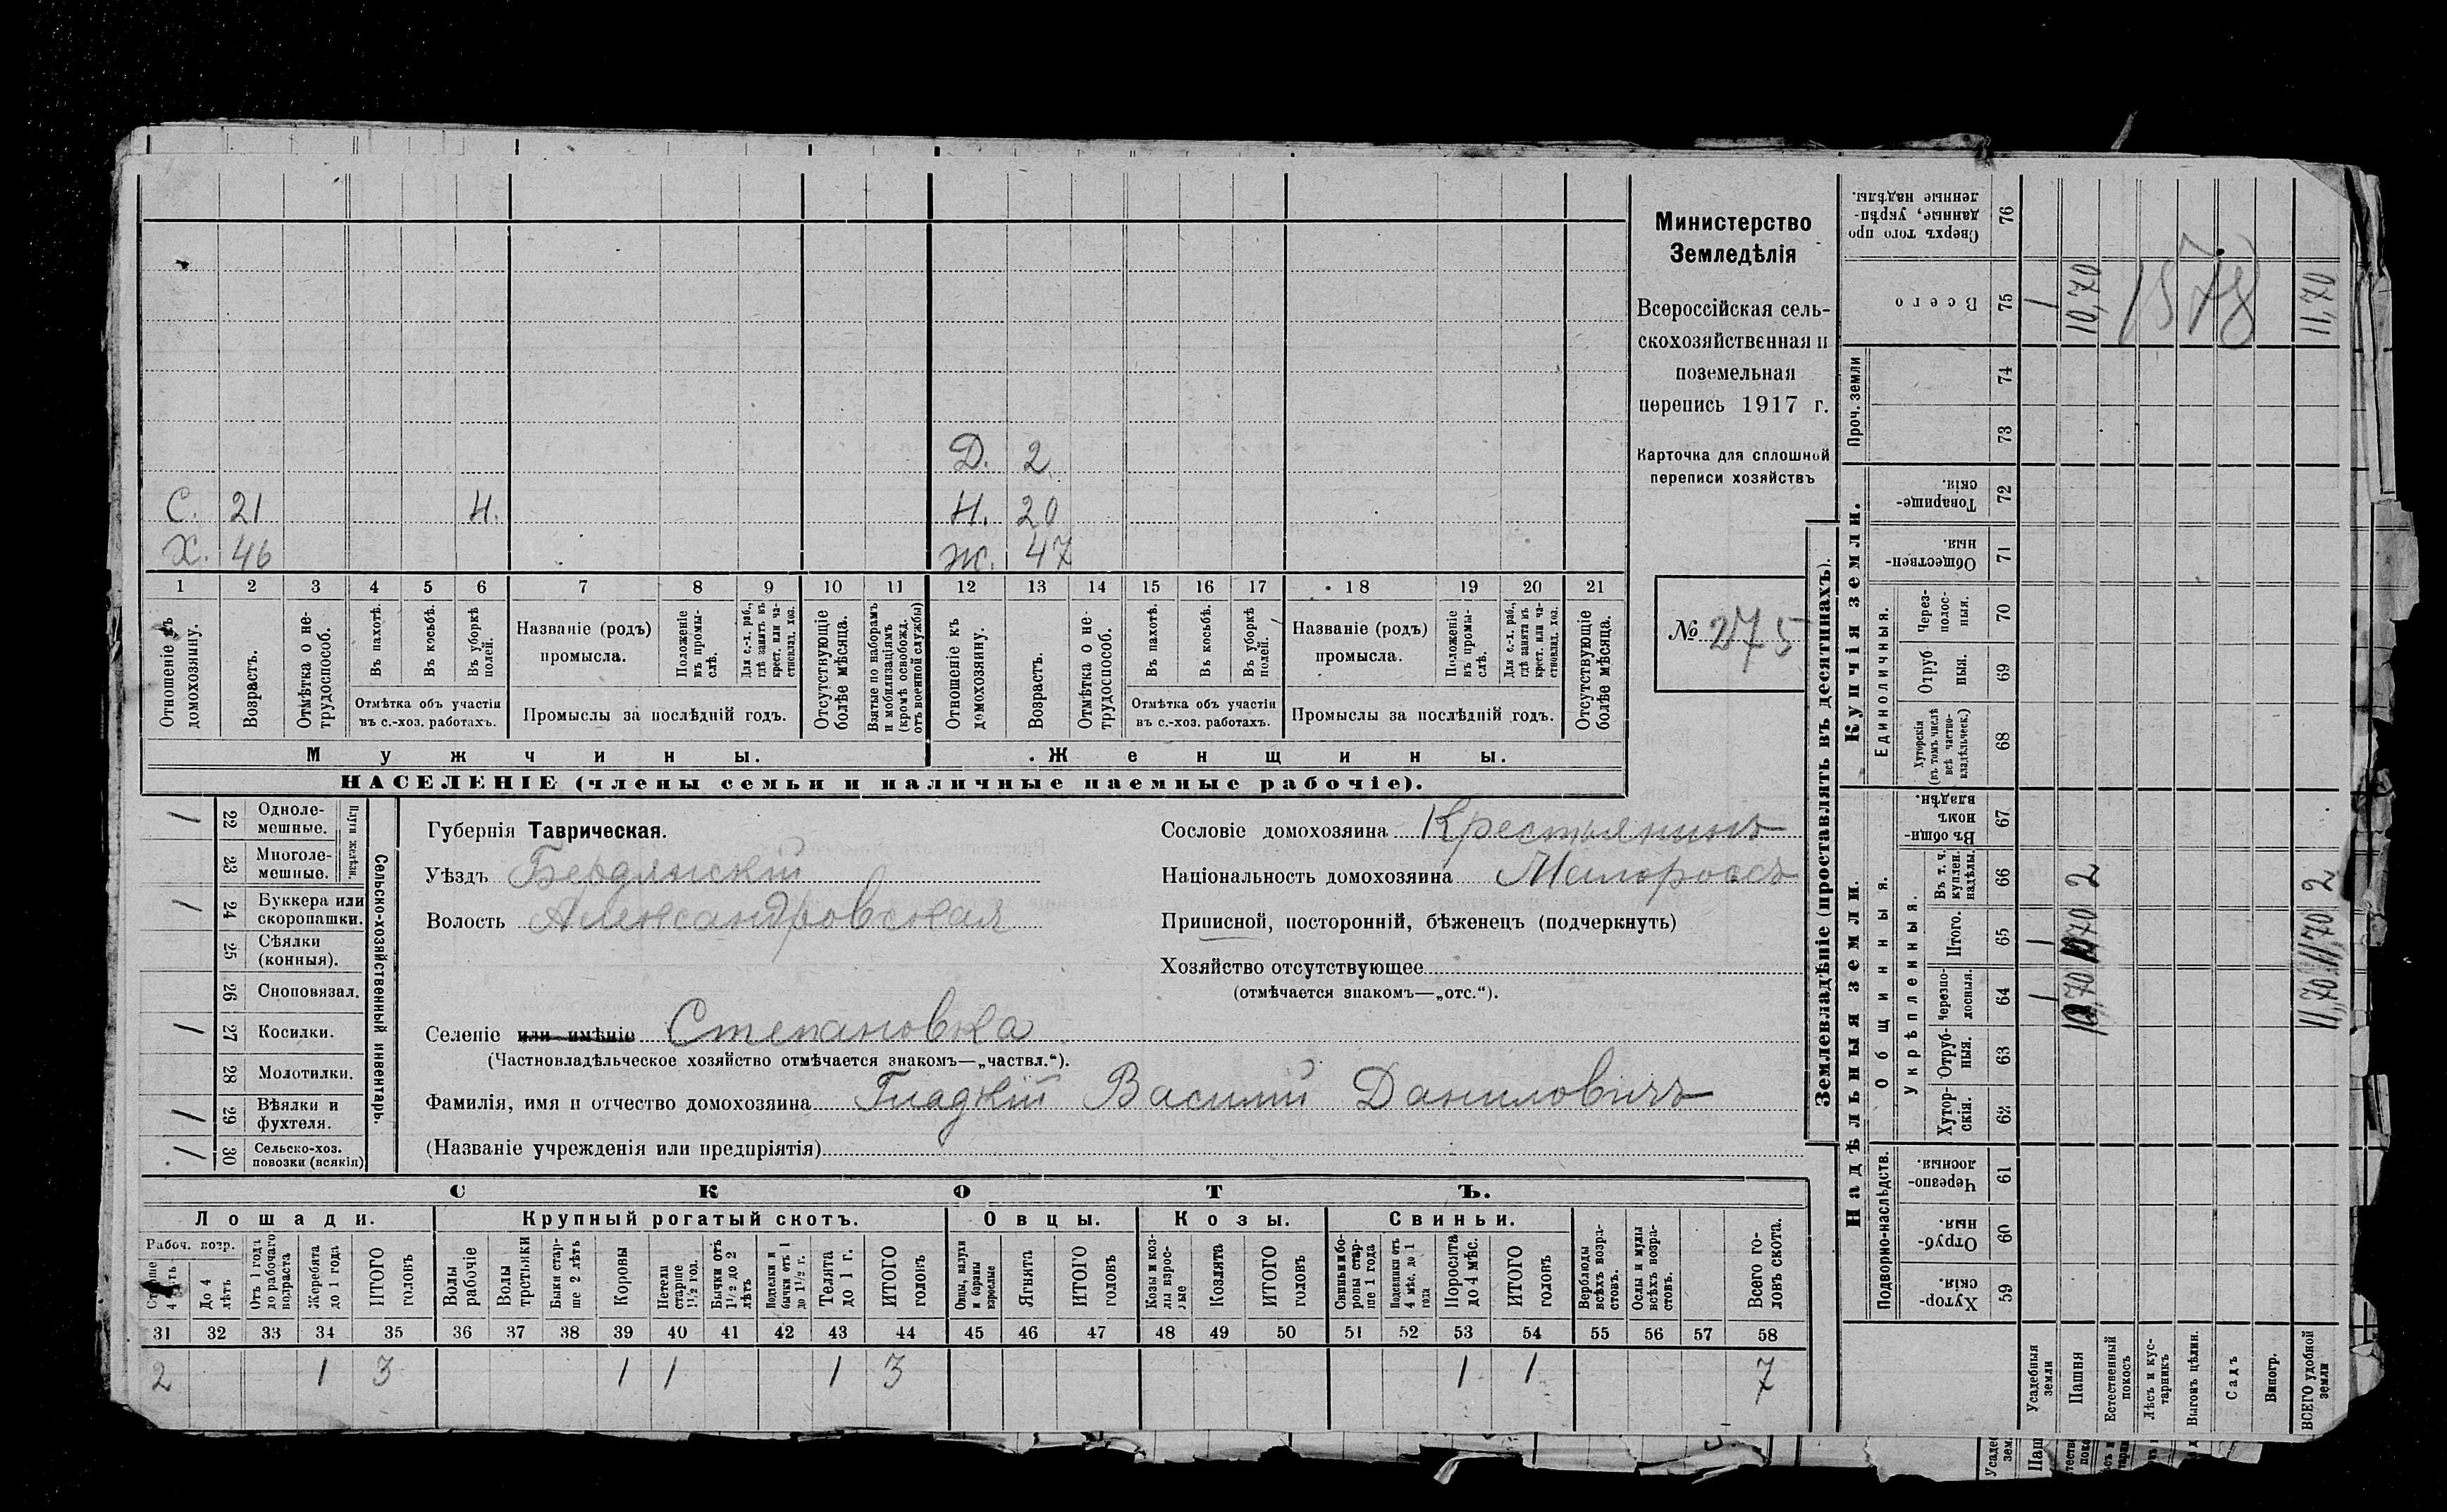 Д. 2
С. 21 Н. Н. 20
Х. 46 Ж. 47
1 2 3 4 5 6 7 8 9 10 11 12 13 14 15 16 17 18 19 20 21
Отношеніе къ домохозяину.
Возрастъ.
Отмѣтка о не-
трудоспособ.
Въ пахотѣ.
Въ косьбѣ.
Въ уборкѣ
полей.
Отмѣтка объ участіи
въ с.-хоз. работахъ.
Названіе (родъ)
промысла.
Положеніе
въ промы-
слѣ.
Для с.-х. раб.,
гдѣ занятъ въ
крест. или ча-
стновлад. хоз.
Промыслы за послѣдній годъ.
Отсутствующіе
болѣе мѣсяца.
Взятые по наборамъ
и мобилизаціямъ
(кромѣ освобожд.
отъ военной службы)
Отношеніе къ
домохозяину.
Возрастъ.
Отмѣтка о не-
трудоспособ.
Въ пахотѣ.
Въ косьбѣ.
Въ уборкѣ
полей.
Отмѣтка объ участіи
въ с.-хоз. работахъ.
Названіе (родъ)
промысла.
Положеніе
въ промы-
слѣ.
Для с.-х. раб.,
гдѣ занята въ
крест. или ча-
стновлад. хоз.
Промыслы за послѣдній годъ.
Отсутствующіе
болѣе мѣсяца.
Мужчины. Женщины.
НАСЕЛЕНІЕ (члены семьи и наличные наемные рабочіе).
Министерство
Земледѣлія
Всероссійская сель-
скохозяйственная и
поземельная
перепись 1917 г.
Карточка для сплошной
переписи хозяйствъ
№ 275
Сельско-хозяйственный инвентарь.
Плуги желѣзн.
1 22 Одноле-
мешные.
23 Многоле-
мешные.
1 24 Буккера или
скоропашки.
25 Сѣялки
(конныя).
26 Сноповязал.
1 27 Косилки.
28 Молотилки.
1 29 Вѣялки и
фухтеля.
1 30 Сельско-хоз.
повозки (всякія)
Губернія Таврическая.
Уѣздъ Бердянскій
Волость Александровская
Сословіе домохозяина Крестьянинъ
Національность домохозяина Малороссъ
Приписной, посторонній, бѣженецъ (подчеркнуть)
Хозяйство отсутствующее
(отмѣчается знакомъ—„отс.“).
Селеніе или имѣніе Степановка
(Частновладѣльческое хозяйство отмѣчается знакомъ—„частвл.“).
Фамилія, имя и отчество домохозяина Гладкій Василій Даниловичъ
(Названіе учрежденія или предпріятія)
СКОТЪ.
Лошади. Крупный рогатый скотъ. Овцы. Козы. Свиньи.
Рабоч. возр.
Старше
4 лѣтъ
До 4
лѣтъ
Отъ 1 года
до рабочаго
возраста
Жеребята
до 1 года
ИТОГО
головъ
Волы
рабочіе
Волы
третьяки
Быки стар-
ше 2 лѣтъ
Коровы
Нетели
старше
1½ год.
Бычки отъ
1½ до 2
лѣтъ
Подтелки и
бычки отъ 1
до 1½ г.
Телята
до 1 г.
ИТОГО
головъ
Овцы, валухи
и бараны
взрослые
Ягнята
ИТОГО
головъ
Козы и коз-
лы взрос-
лые
Козлята
ИТОГО
головъ
Свиньи и бо-
ровы стар-
ше 1 года
Подсвинки отъ
4 мѣс. до 1
года
Поросята
до 4 мѣс.
ИТОГО
головъ
Верблюды
всѣхъ возра-
стовъ.
Ослы и мулы
всѣхъ возра-
стовъ.
Всего го-
ловъ скота.
31 32 33 34 35 36 37 38 39 40 41 42 43 44 45 46 47 48 49 50 51 52 53 54 55 56 57 58
2 1 3 1 1 1 3 1 1 7
Землевладѣніе (проставлять въ десятинахъ).
Надѣльныя земли. Купчія земли. Проч. земли
Подворно-наслѣдств.
Общинныя.
Укрѣпленныя.
Единоличныя.
Хутор-
скія. 59
Отруб-
ныя. 60
Черезпо-
лосныя. 61
Хутор-
скія. 62
Отруб-
ныя. 63
Черезпо-
лосныя. 64
Итого. 65
Въ т. ч.
куплен.
надѣлы. 66
Въ общи-
номъ
владѣн. 67
Хуторскія
(въ томъ числѣ
всѣ частно-
владѣльческ.) 68
Отруб
ныя. 69
Через-
полос-
ныя. 70
Обществен-
ныя. 71
Товарище-
скія. 72
73
74
Всего 75
Сверхъ того про
данные, укрѣп-
ленные надѣлы. 76
Усадебныя
земли 1 1 1
Пашня 2 10,70
Естественный
покосъ
Лѣсъ и кус-
тарникъ
Выгонъ цѣлин.
Садъ
Виногр.
ВСЕГО удобной
земли 11,70 11,70 2 11,70
1578